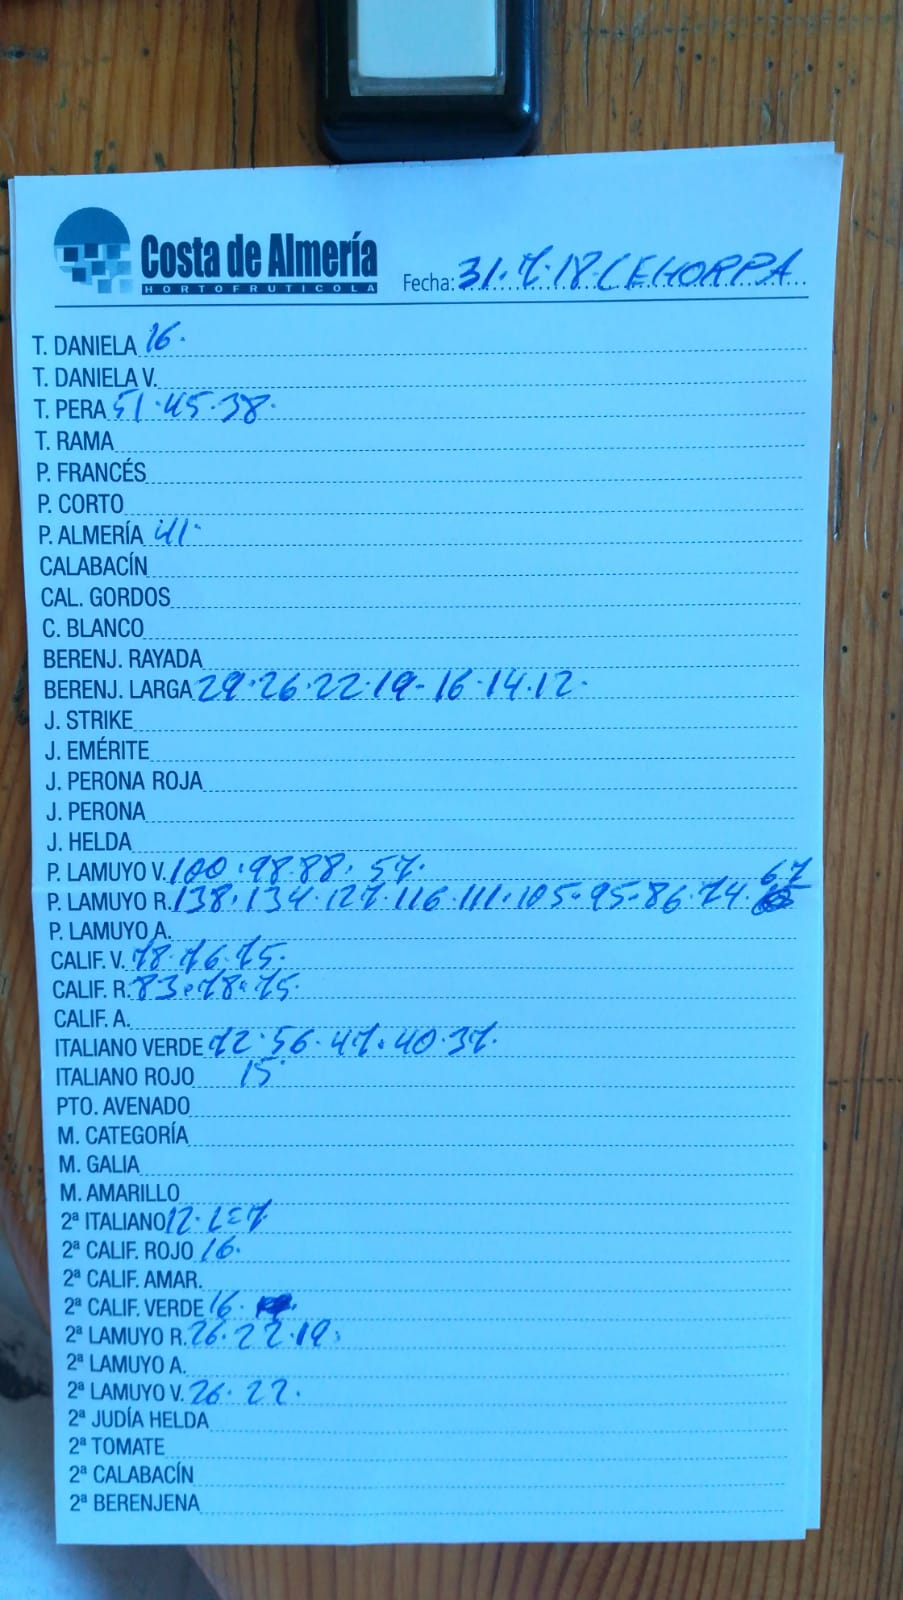 Costa de Almería
HORTOFRUTICOLA
Fecha: 31.7.18. CEHORPA
T. DANIELA 16.
T. DANIELA V.
T. PERA 51.45.38.
T. RAMA
P. FRANCÉS
P. CORTO
P. ALMERÍA 41.
CALABACÍN
CAL. GORDOS
C. BLANCO
BERENJ. RAYADA
BERENJ. LARGA 29.26.22.19-16.14.12.
J. STRIKE
J. EMÉRITE
J. PERONA ROJA
J. PERONA
J. HELDA
P. LAMUYO V. 100.98.88.57.
P. LAMUYO R. 138.134.127.116.111.105.95.86.74.67
P. LAMUYO A.
CALIF. V. 78.76.75.
CALIF. R. 83.78.75.
CALIF. A.
ITALIANO VERDE 72.56.47.40.37.
ITALIANO ROJO 15
PTO. AVENADO
M. CATEGORÍA
M. GALIA
M. AMARILLO
2ª ITALIANO 12.
2ª CALIF. ROJO 16.
2ª CALIF. AMAR.
2ª CALIF. VERDE 16.
2ª LAMUYO R. 26.22.19.
2ª LAMUYO A.
2ª LAMUYO V. 26.22.
2ª JUDÍA HELDA
2ª TOMATE
2ª CALABACÍN
2ª BERENJENA